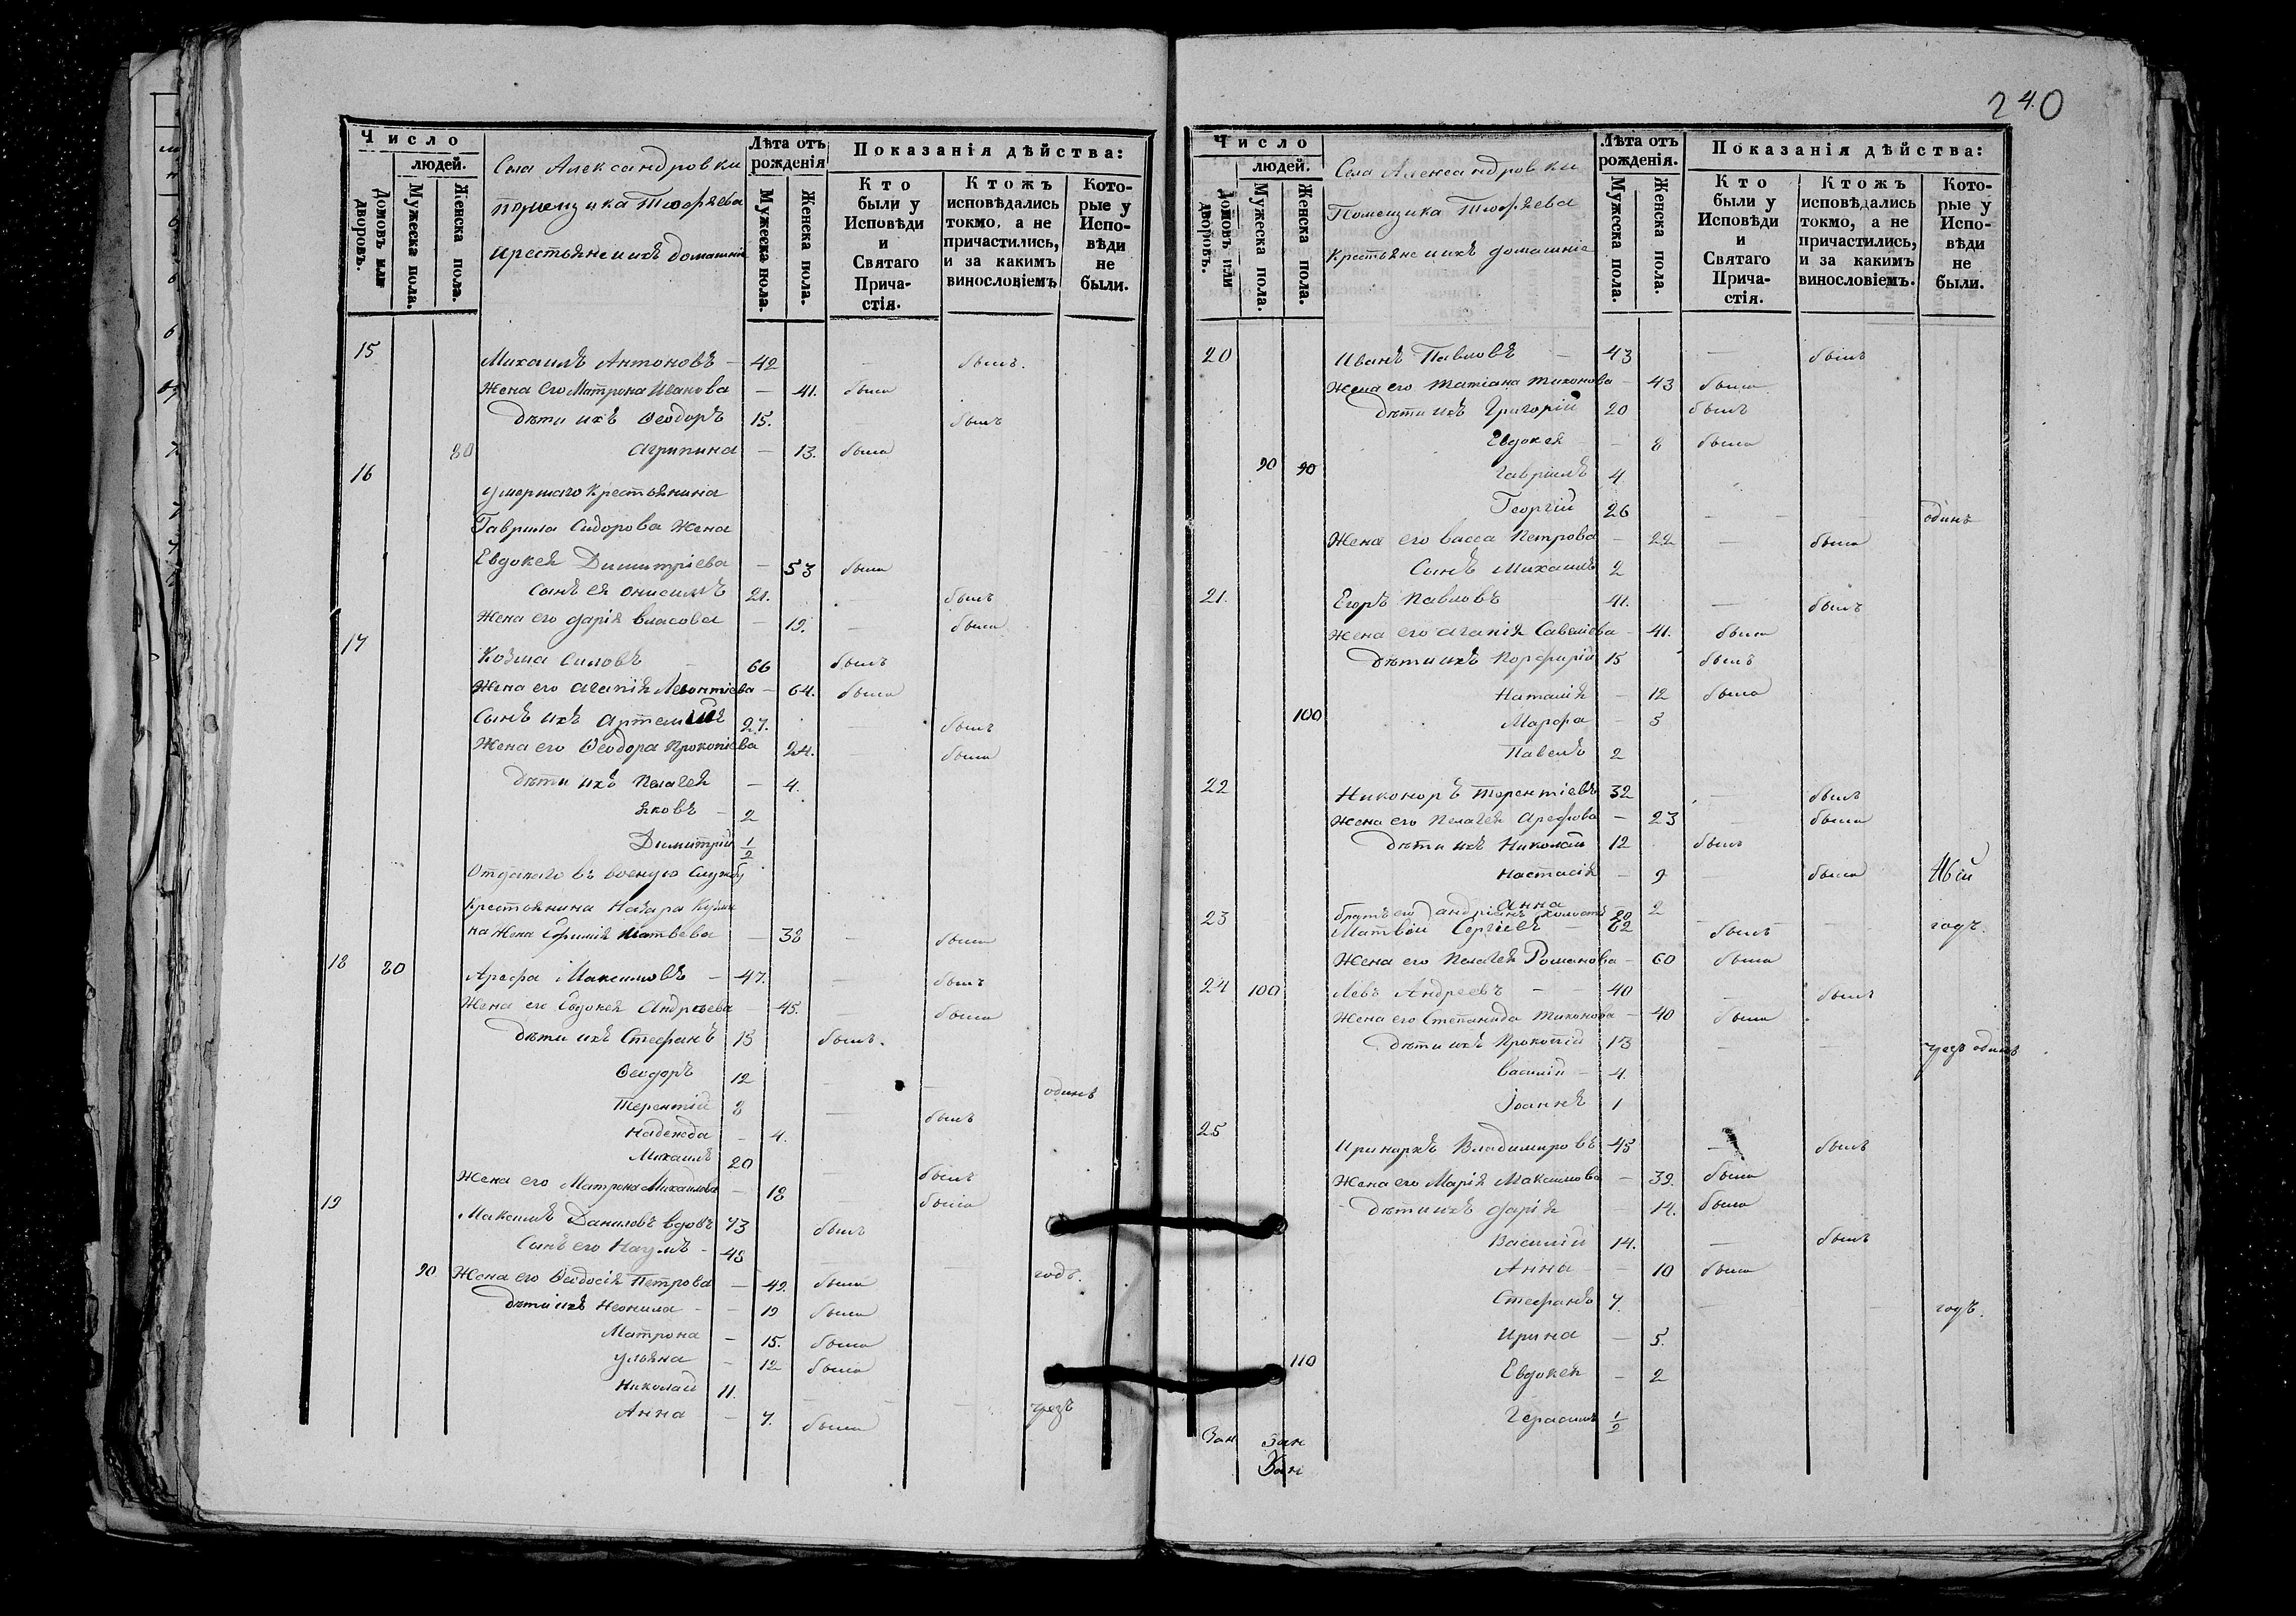 240
Число
людей.
Домовъ или дворовъ.
Мужеска пола.
Женска пола.
Села Александровки
помещика
Крестьяне и ихъ домашніе
Лѣта отъ рожденія
Мужеска пола.
Женска пола.
Показанія дѣйства:
Кто были у Исповѣди и Святаго Причастія.
Ктожъ исповѣдались токмо, а не причастились, и за какимъ винословіемъ
Которые у Исповѣди не были.
15 Михаилъ Антоновъ — 42 — былъ.
Жена его Матрона Иванова — 41. была
Дѣти ихъ Ѳеодоръ 15. — былъ
80 Агрипина — 13. была
16
умершаго Крестьянина
Гаврила Сидорова Жена
Евдокея Димитріева — 53 была
Сынъ ея Онисимъ 21. — былъ
Жена его Дарія Власова — 19. — была
17
Козма Силовъ — 66 былъ
Жена его Агапія Леонтіева — 64. была
Сынъ ихъ Артемій 27. — былъ
Жена его Ѳеодора Прокопіева 24. — была
Дѣти ихъ Пелагея — 4.
Яковъ — 2
Димитрій 1/2
Отданаго въ военую службу
Крестьянина Назара Кузми
на Жена Ефимія Матвѣева — 38 — была
18 80 Арефа Максимовъ — 47. — былъ
Жена его Евдокея Андреева — 45. — была
Дѣти ихъ Стефанъ 15 былъ.
Ѳеодоръ 12 — одинъ
Терентій 8 — былъ
Надежда — 4.
Михаилъ 20 — былъ
Жена его Матрона Михаилова — 18 — была
19
Максимъ Даниловъ вдовъ 73 былъ
Сынъ его Наумъ — 48 — годъ.
90 Жена его Ѳеодосія Петрова — 49. была
Дѣти ихъ Неонила — 19 была
Матрона — 15. была
Ульяна — 12 была
Николай 11. — — чрезъ
Анна — 7. была
Число
людей.
Домовъ или дворовъ.
Мужеска пола.
Женска пола.
Села Александровки
Помещика
Крестьяне и ихъ домашніе
Лѣта отъ рожденія.
Мужеска пола.
Женска пола.
Показанія дѣйства:
Кто были у Исповѣди и Святаго Причастія.
Ктожъ исповѣдались токмо, а не причастились, и за какимъ винословіемъ.
Которые у Исповѣди не были.
20 Иванъ Павловъ — 43 — былъ
Жена его Татіана Тихонова — 43 была
Дѣти ихъ Григорій 20 былъ
Евдокея — 8 была
90 90 Гавріилъ 4
Георгій 26 — — одинъ
Жена его Васса Петрова — 22 — была
Сынъ Михаилъ 2
21. Егоръ Павловъ 41. — былъ
Жена его Агапія Савеліева — 41. была
Дѣти ихъ Порфирій 15 былъ
Наталія — 12 была
100 Марфа — 5
Павелъ 2
22 Никоноръ Терентіевъ 32 — былъ
Жена его Пелагея Арефова — 23 — была
Дѣти ихъ Николай 12 былъ
Настасія — 9 — была
Анна — 2
братъ его Андріанъ холостъ 20
23 Матвѣй Сергіевъ — 62 былъ — годъ.
Жена его Пелагея Романова — 60 была
24 100 Левъ Андреевъ — — 40 — былъ
Жена его Степанида Тихонова — 40 была
Дѣти ихъ Прокопій 13 — — чрезъ одинъ
Василій — 4.
Іоаннъ 1
25
Иринархъ Владимировъ 45 — былъ
Жена его Марія Максимова — 39. была
Дѣти ихъ Дарія — 14. была
Василій 14. — былъ
Анна — 10 была
Стефанъ 7. — — годъ.
Ирина — 5.
110 Евдокея — 2
Герасимъ 1/2